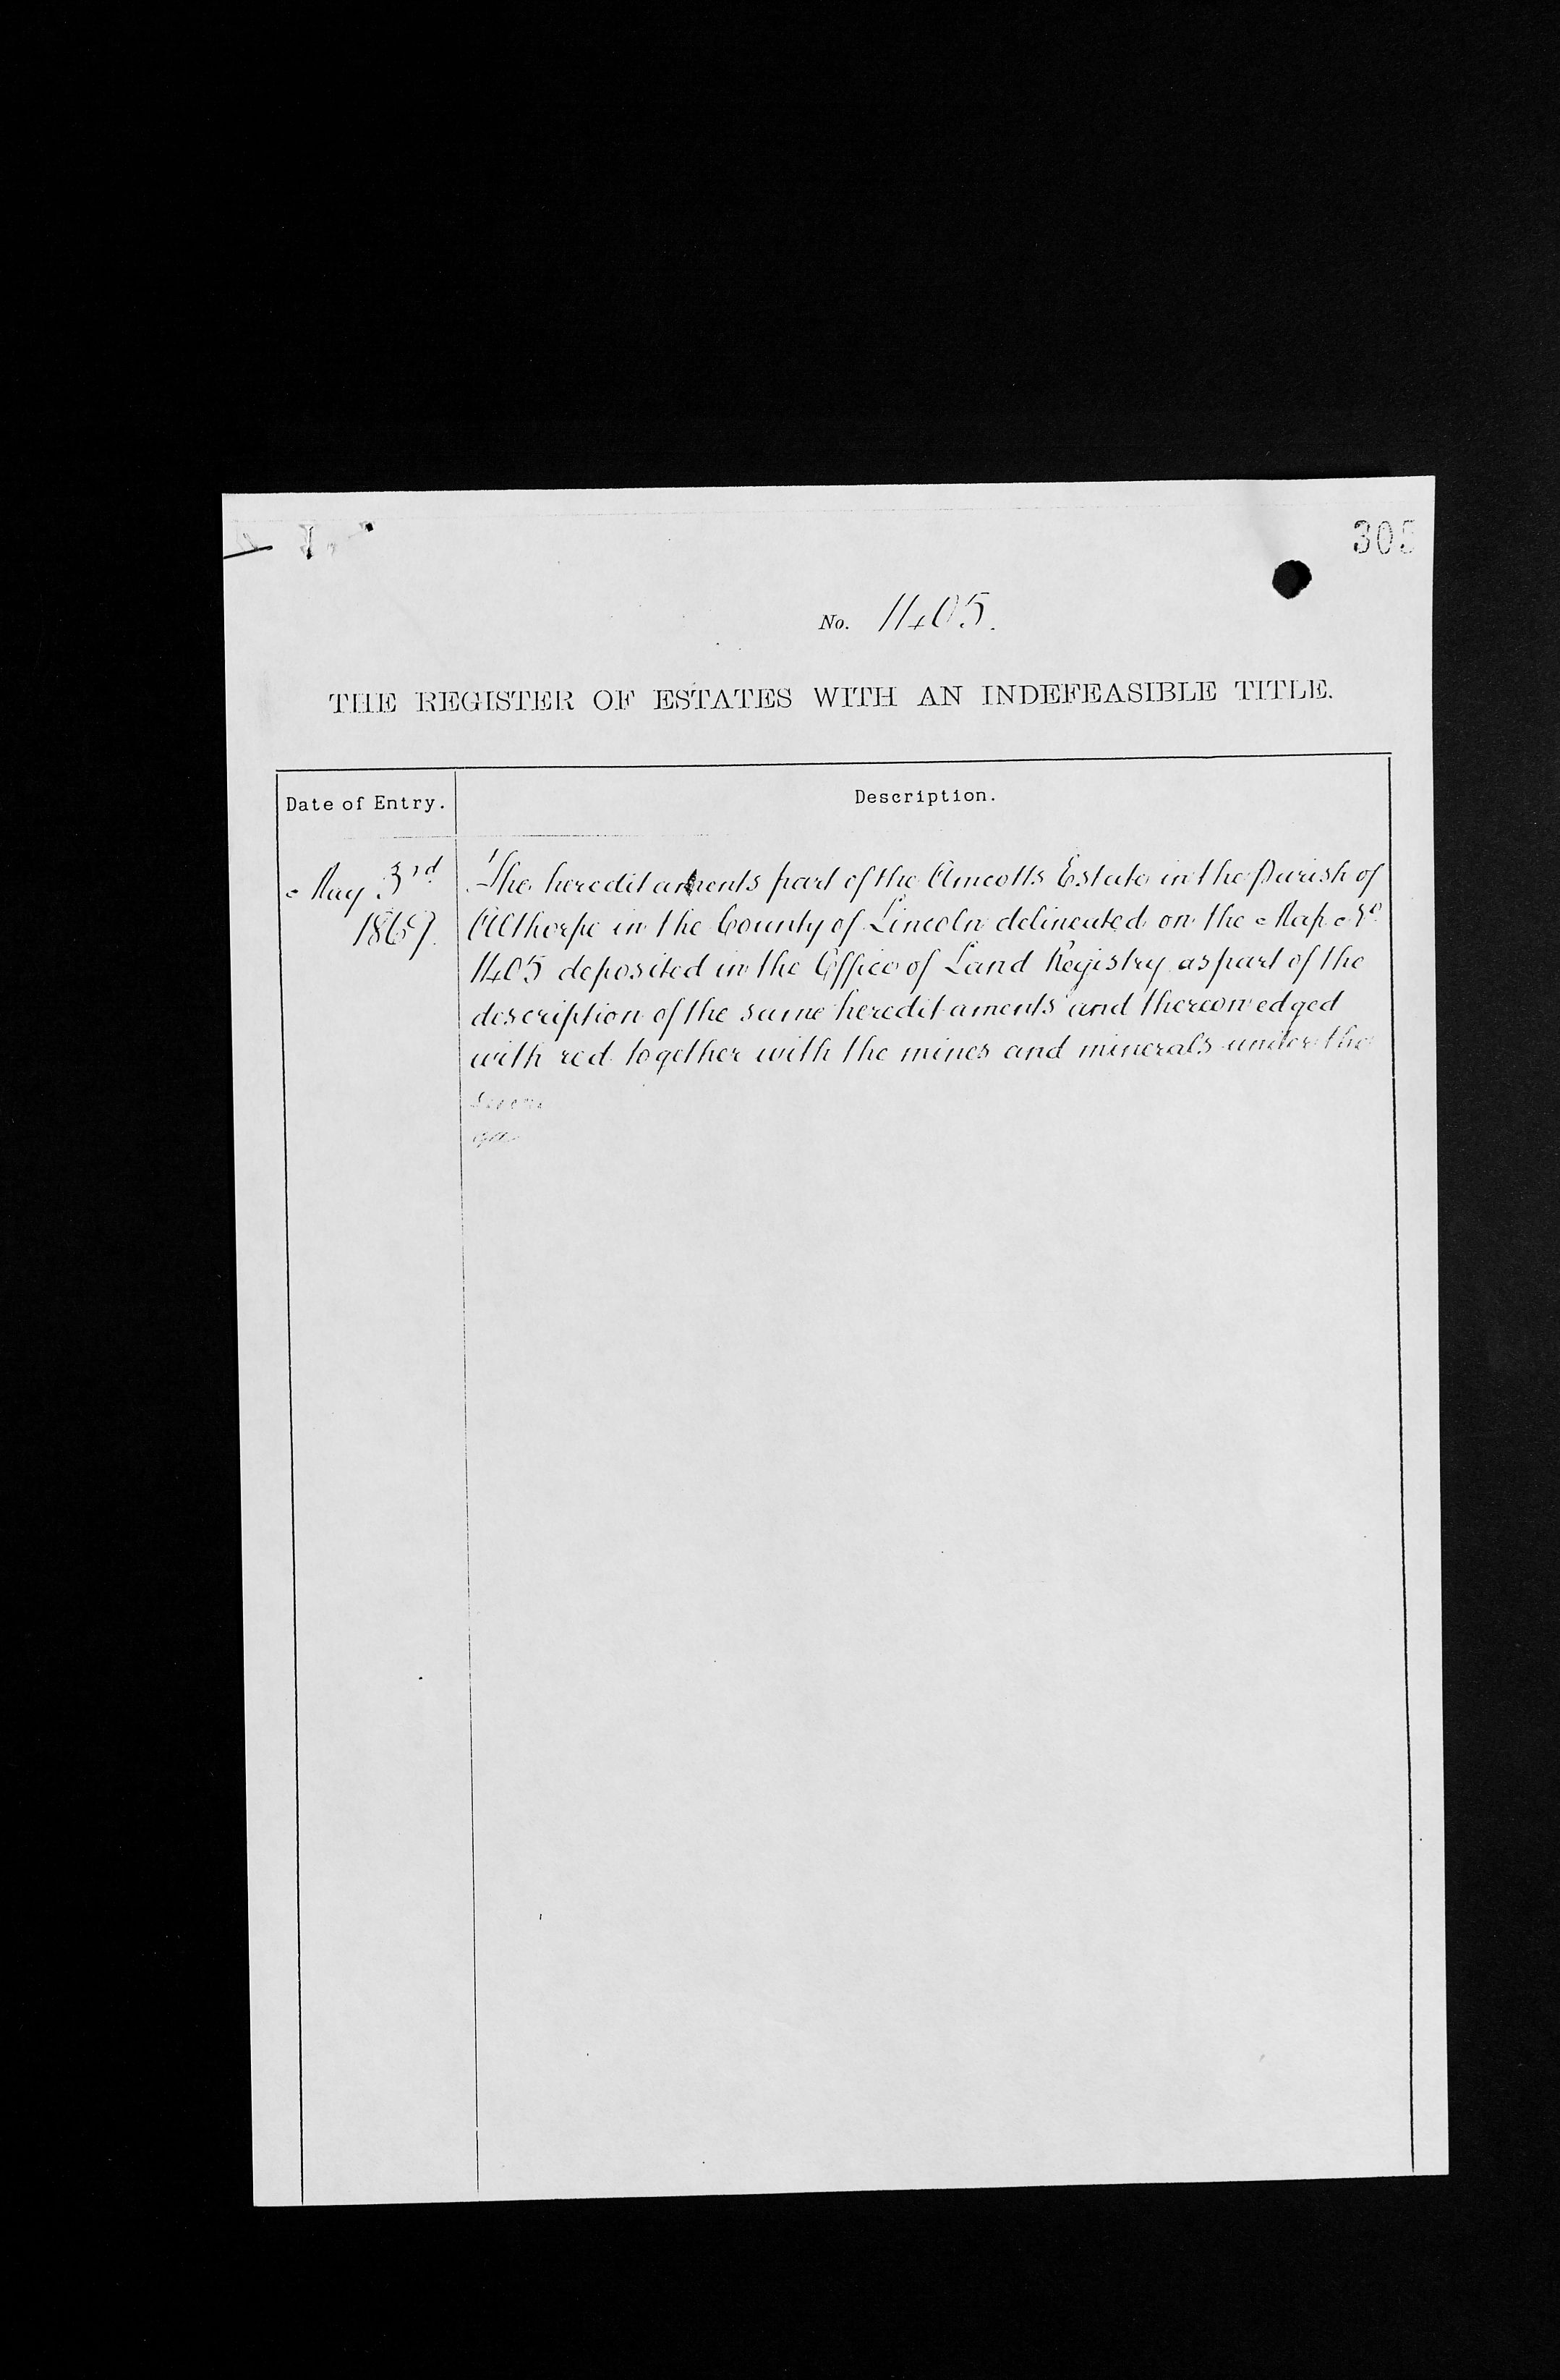 305
No. 1405.
THE REGISTER OF ESTATES WITH AN INDEFEASIBLE TITLE.
Date of Entry.
Description.
May 3rd
1869.
The hereditaments part of the Amcotts Estate in the Parish of
Althorpe in the County of Lincoln delineated on the Map No.
1405 deposited in the Office of Land Registry as part of the
description of the same hereditaments and thereon edged
with red together with the mines and minerals under the
same